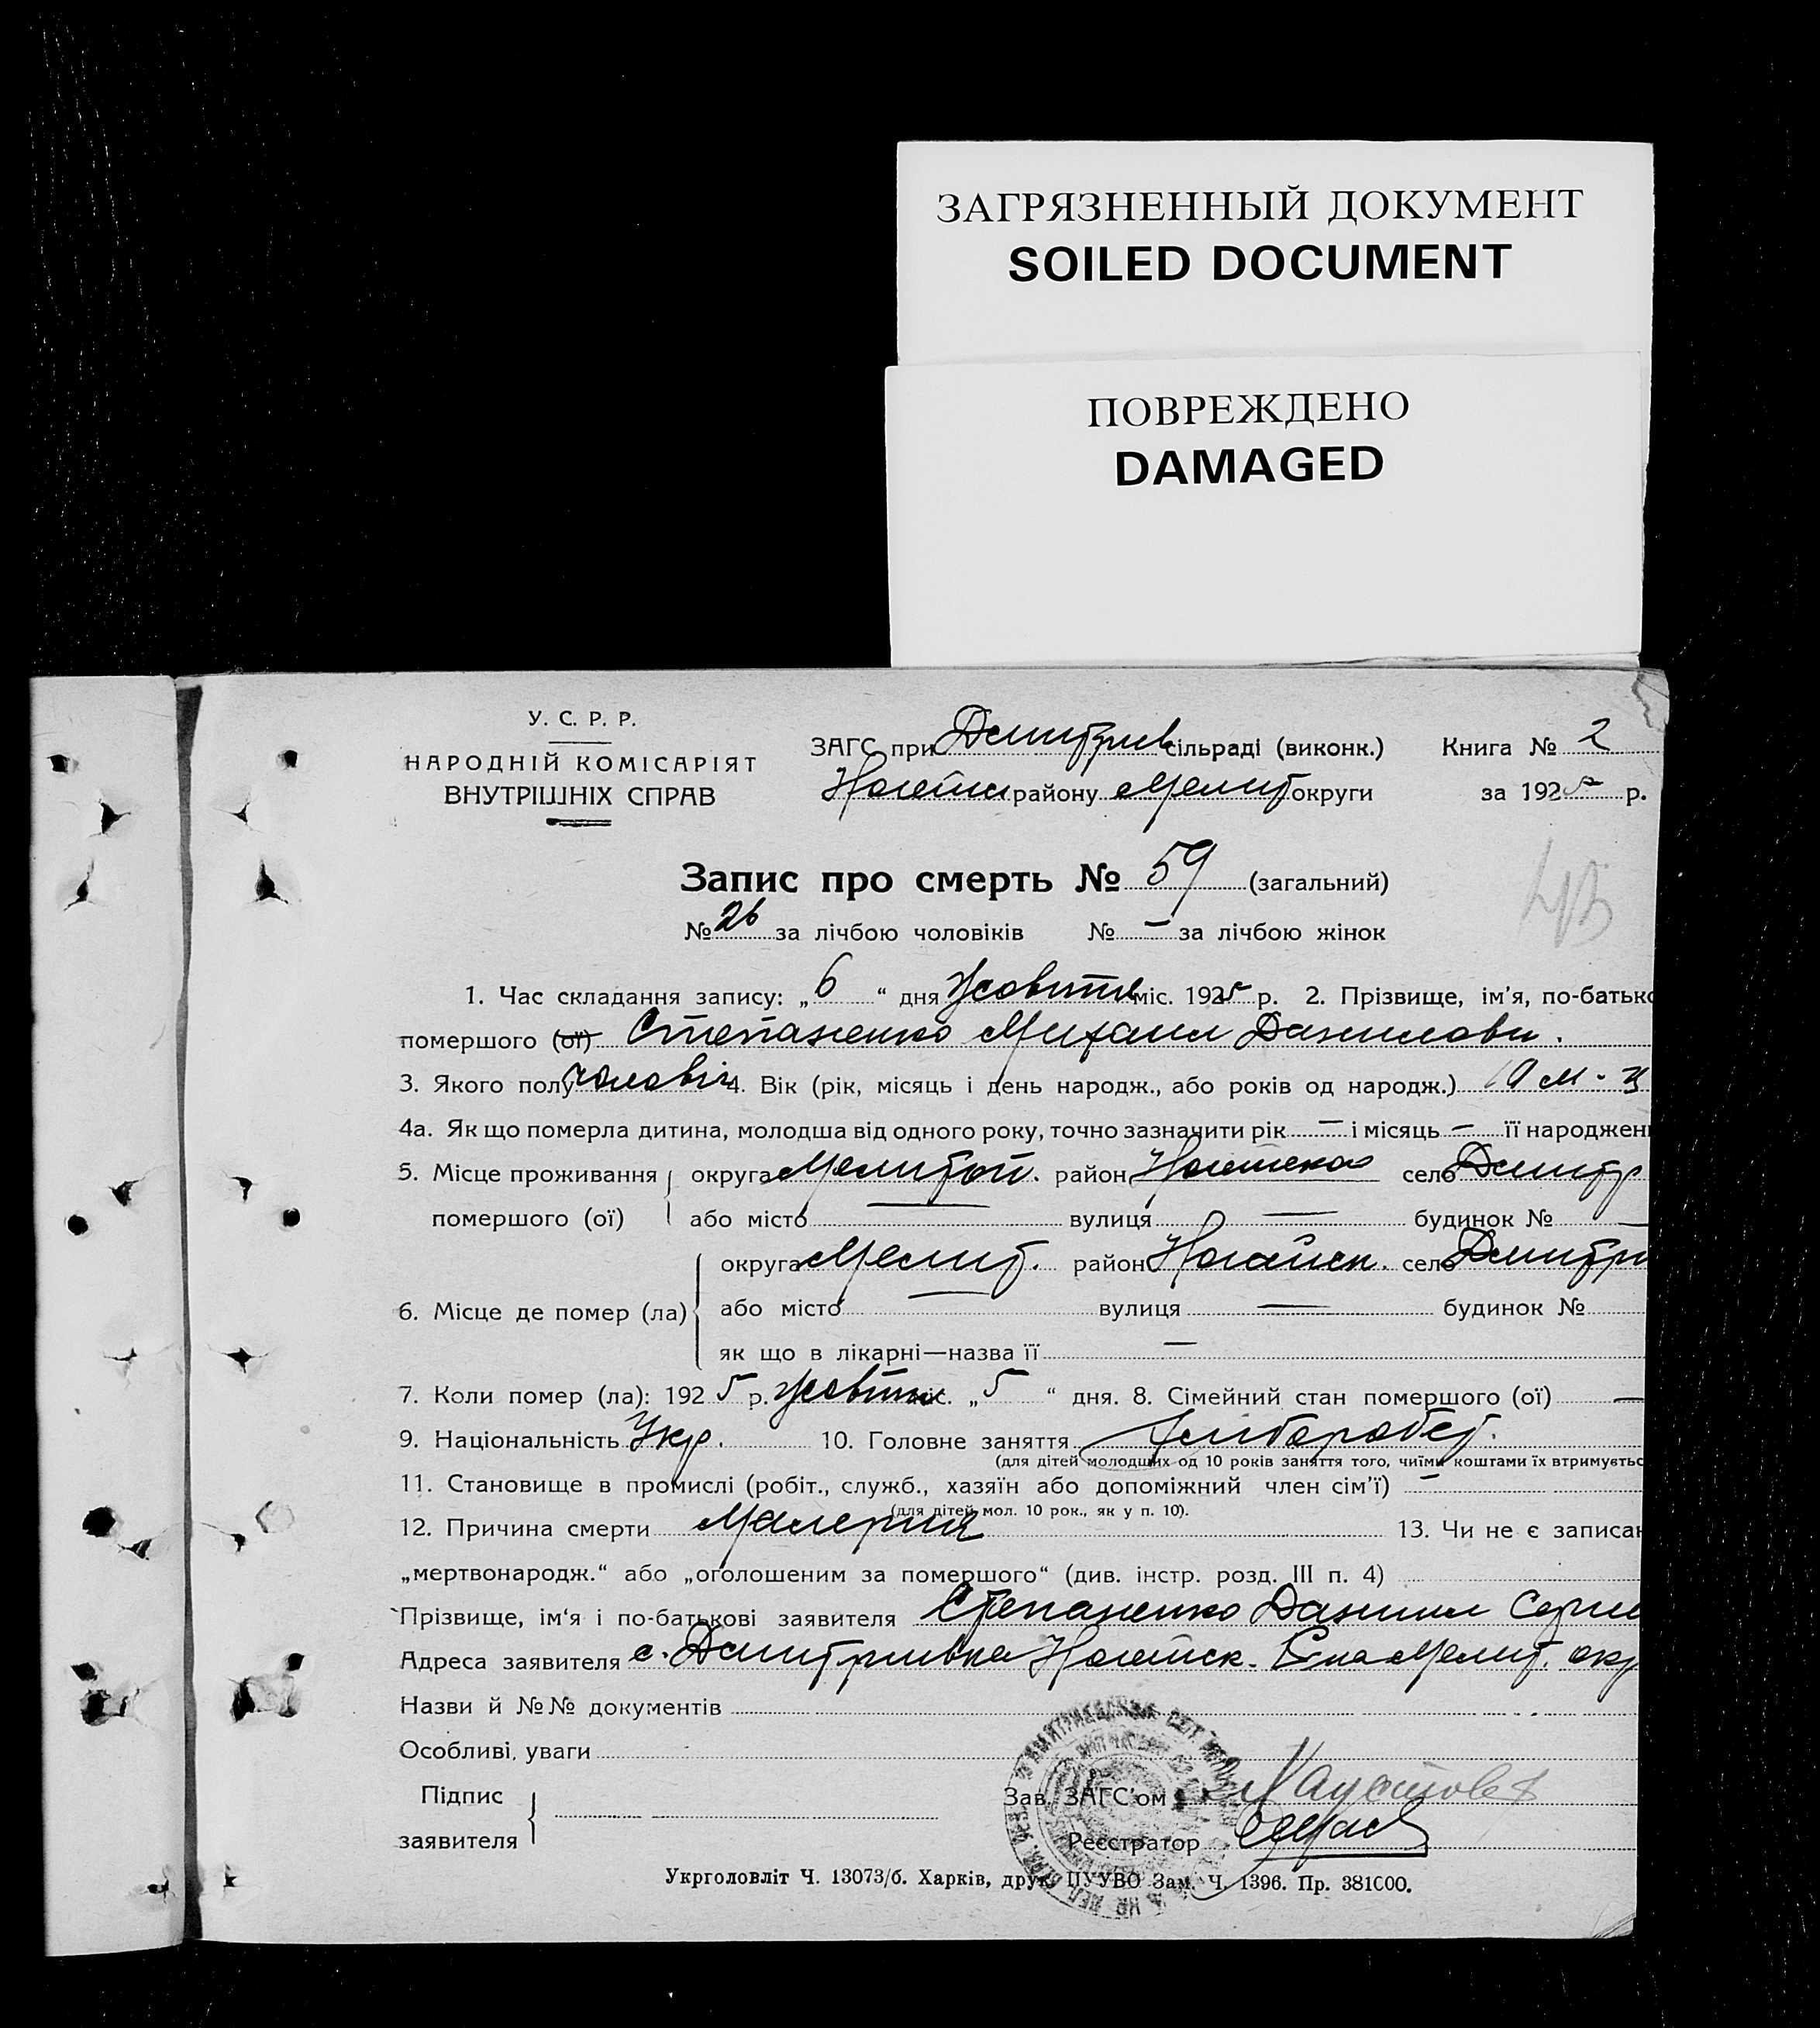 ЗАГРЯЗНЕННЫЙ ДОКУМЕНТ
SOILED DOCUMENT
ПОВРЕЖДЕНО
DAMAGED
У. С. Р. Р.
НАРОДНІЙ КОМІСАРІЯТ
ВНУТРІШНІХ СПРАВ
ЗАГС при Дмитрив сільраді (виконк.) Книга № 2
району Мелит округи за 1925 р.
Запис про смерть № 59 (загальний)
№ 26 за лічбою чоловіків № — за лічбою жінок
1. Час складання запису: „ 6 “ дня Жовтня міс. 1925 р. 2. Прізвище, ім’я, по-батько
помершого (ої) Степаненко Михаил Данилови.
3. Якого полу чоловіч 4. Вік (рік, місяць і день народж., або років од народж.)
4а. Як що померла дитина, молодша від одного року, точно зазначити рік — і місяць — її народжен
5. Місце проживання округа Мелитоп. район село Дмитр
помершого (ої) або місто — вулиця — будинок № —
округа Мелит. район Ногайск. село Дмитри
6. Місце де помер (ла) або місто — вулиця — будинок №
як що в лікарні—назва її —
7. Коли помер (ла): 1925 р. Жовтня міс. „ 5 “ дня. 8. Сімейний стан помершого (ої) —
9. Національність Укр. 10. Головне заняття Хлібороб
(для дітей молодших од 10 років заняття того, чиїми коштами їх втримуєтьс
11. Становище в промислі (робіт., служб., хазяїн або допоміжний член сім’ї) —
(для дітей мол. 10 рок., як у п. 10).
12. Причина смерти Малерия 13. Чи не є записан
„мертвонародж.“ або „оголошеним за помершого“ (див. інстр. розд. III п. 4)
Прізвище, ім‘я і по-батькові заявителя Степаненко Данил Серг
Адреса заявителя с. Дмитривка Ногайск. Мелит. окр
Назви й №№ документів
Особливі уваги
Підпис
заявителя
Зав. ЗАГС’ом
Реєстратор
Укрголовліт Ч. 13073/б. Харків, друк. ЦУУВО Зам. Ч. 1396. Пр. 381000.